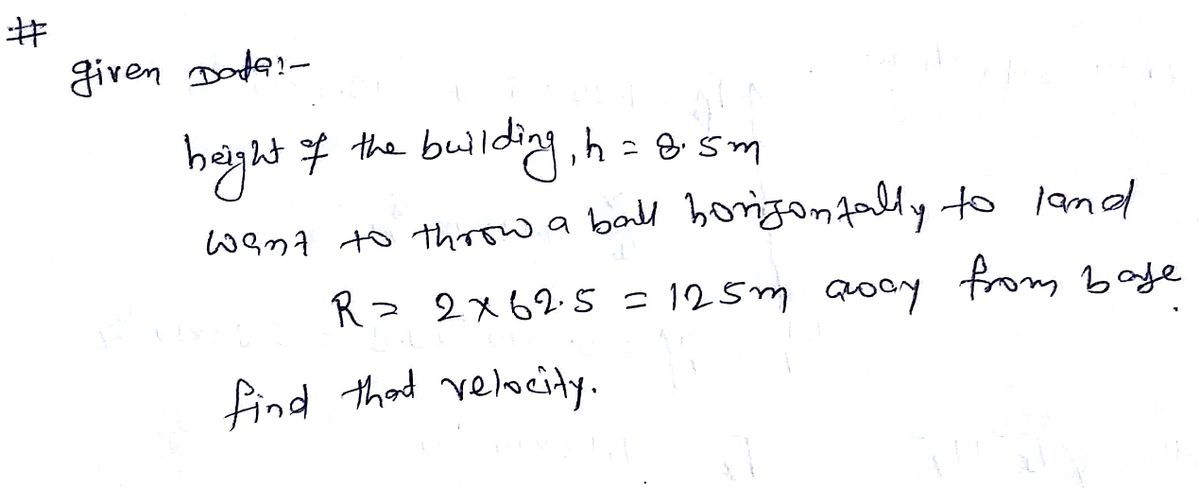 #
given Data:-
height of the building, h = 8.5m
want to throw a ball horizontally to land
R = 2 x 62.5 = 125m away from base.
find that velocity.